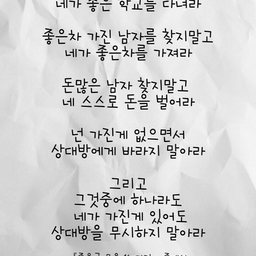 네가 좋은 학교를 다녀라
좋은차 가진 남자를 찾지말고
네가 좋은차를 가져라
돈많은 남자 찾지말고
네 스스로 돈을 벌어라
넌 가진게 없으면서
상대방에게 바라지 말아라
그리고
그것중에 하나라도
네가 가진게 있어도
상대방을 무시하지 말아라